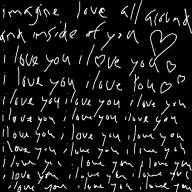 imagine love all around
and inside of you ♡
i love you i love you ♡
i love you i love you ♡
i love you i love you i love you
i love you i love you i love you
i love you i love you i love you
i love you i love you i love you
i love you i love you i love you
i love you i love you i love you